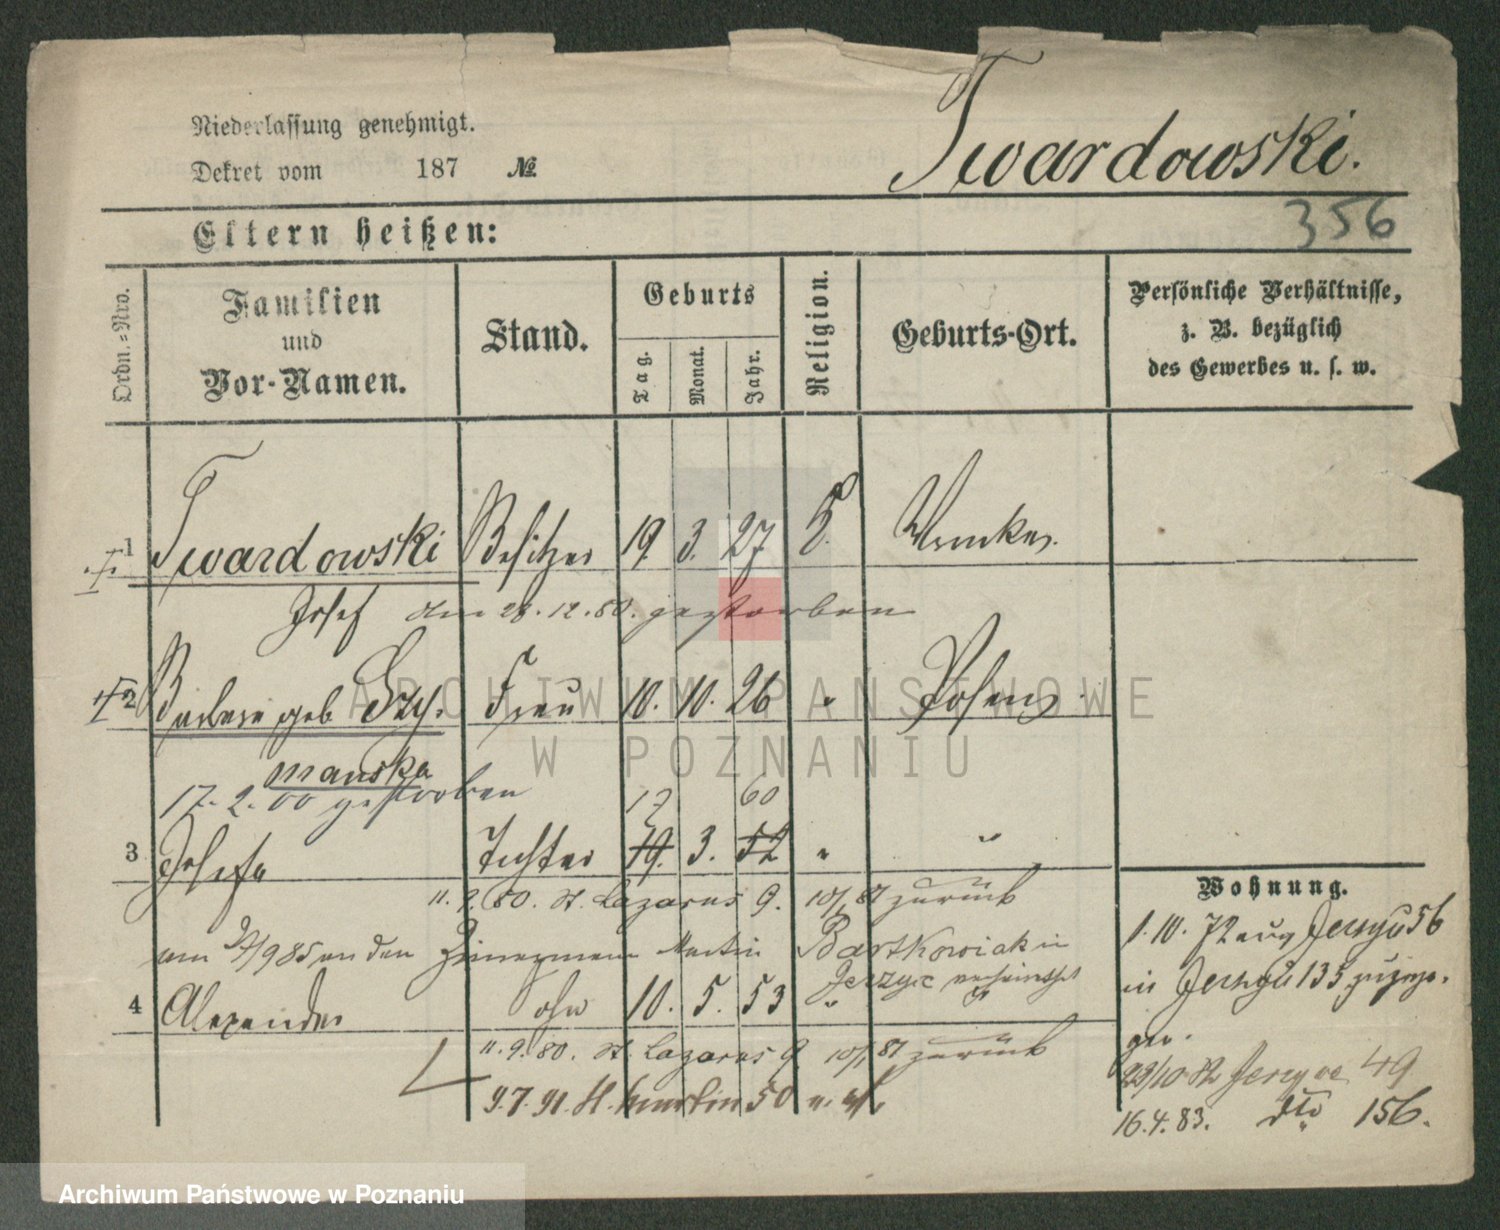 Niederlassung genehmigt.
Dekret vom 187 №
Twardowski.
356
Eltern heißen:
Ordn.-Nro.
Familien
und
Vor-Namen.
Stand.
Geburts
Tag.
Monat.
Jahr.
Religion.
Geburts-Ort.
Persönliche Verhältnisse,
z. B. bezüglich
des Gewerbes u. s. w.
1 Twardowski Besitzer 19. 3. 27
Josef den 28.12.80. gestorben
2 geb Szy- Frau 10. 10. 26 " Posen
manska
17.2.00 gestorben 17 60
3 Josefa Tochter 19. 3. 52 " "
11.9.80. St. Lazarus 9. 10/1 81 zurück
am 85 an den Martin Bartkowiak in
Jerzyce
4 Alexander Sohn 10. 5. 53 "
11.9.80. St. Lazarus 9 10/1 81 zurück
9.7.91. St. Martin 50
Wohnung.
1.10.72 aus 56
in 135
gen.
23/10 82 Jerzyce 49
16.4.83. dto 156.
ARCHIWUM PAŃSTWOWE
W POZNANIU
Archiwum Państwowe w Poznaniu